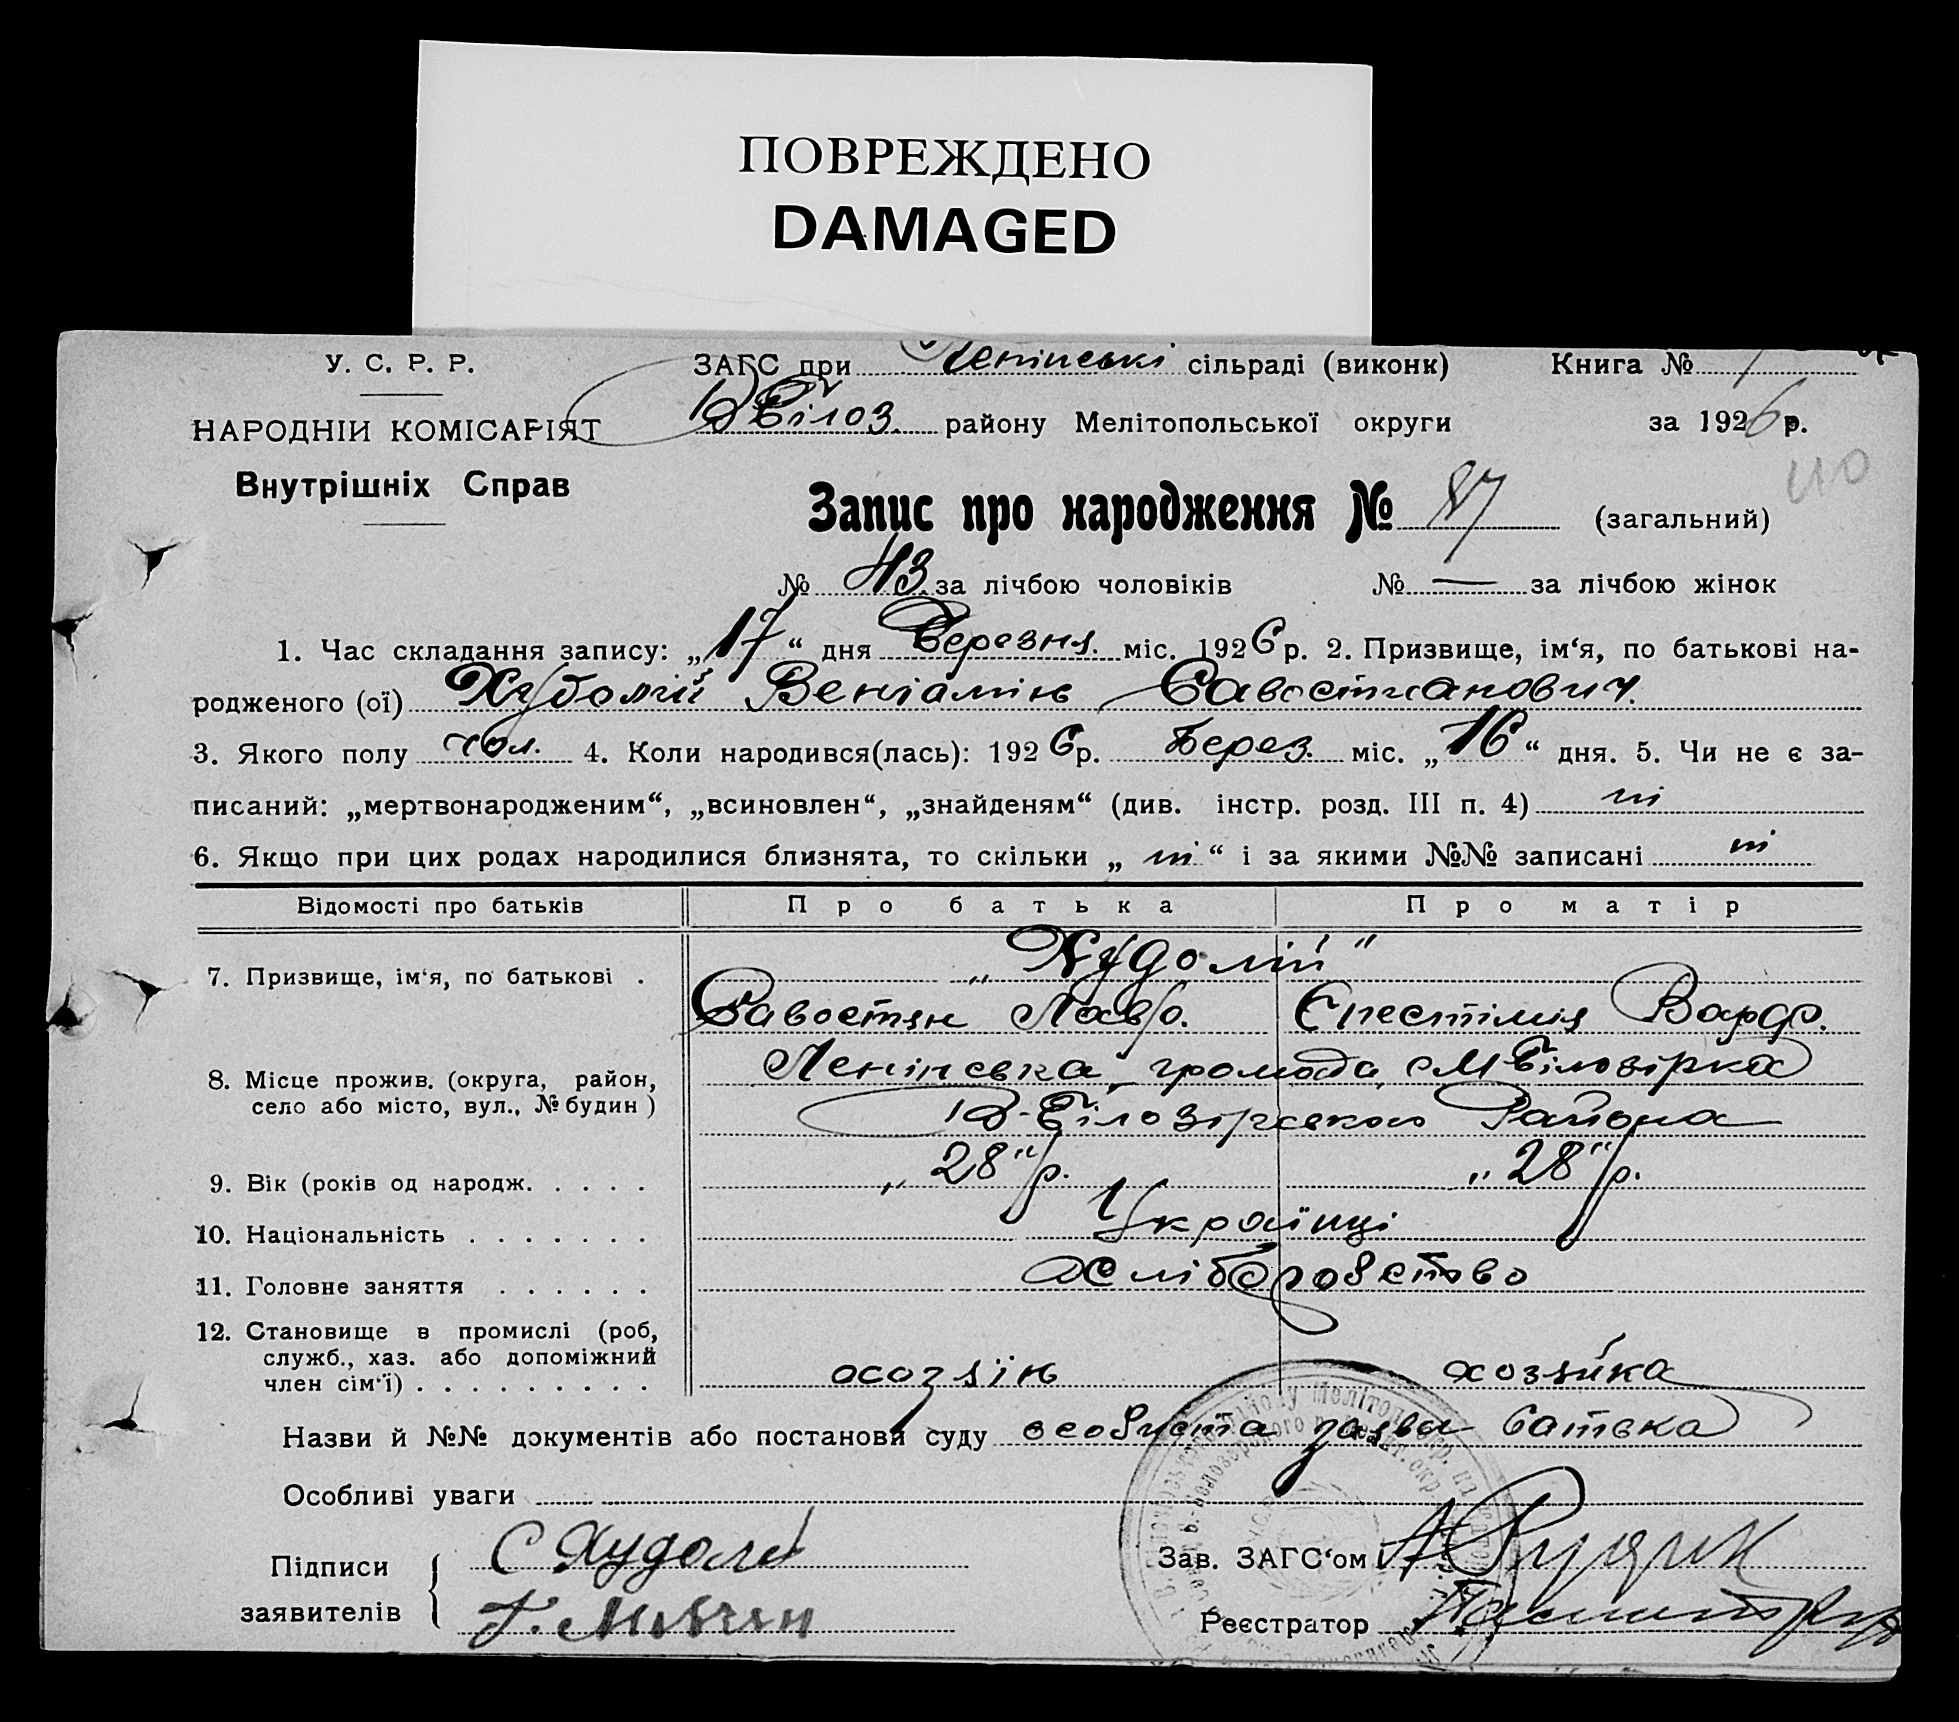 ПОВРЕЖДЕНО
DAMAGED
У. С. Р. Р.
ЗАГС при Ленінські сільраді (виконк)
Книга № 1
НАРОДНІЙ КОМІСАРІЯТ
В Білоз. району Мелітопольської округи
за 1926 р.
110
Внутрішніх Справ
Запис про народження № 87 (загальний)
№ 43 за лічбою чоловіків № — за лічбою жінок
1. Час складання запису: „17“ дня Березня міс. 1926 р. 2. Призвище, ім‘я, по батькові на-
родженого (ої) Худолій Веніамін Савостианович.
3. Якого полу чол. 4. Коли народився(лась): 1926 р. Берез. міс. „16“ дня. 5. Чи не є за-
писаний: „мертвонародженим“, „всиновлен“, „знайденям“ (див. інстр. розд. III п. 4) ні
6. Якщо при цих родах народилися близнята, то скільки „ ні “ і за якими №№ записані ні
Відомості про батьків Про батька Про матір
7. Призвище, ім‘я, по батькові . „Худолій“
Савостян Лавр. Єпестімія Варф.
8. Місце прожив. (округа, район, село або місто, вул., № будин) Ленінська громада, с М Білозірка
В-Білозірського Района
9. Вік (років од народж. . . . . „28“ р. „28“ р.
10. Національність . . . . . . . Українці
11. Головне заняття . . . . . . хліборобство
12. Становище в промислі (роб,
служб., хаз. або допоміжний
член сім‘ї) . . . . . . . . . хозяїн хозяйка
Назви й №№ документів або постанови суду особиста заява батька
Особливі уваги
Підписи
заявителів
С Худолій
Зав. ЗАГС‘ом А Рудик
Реєстратор